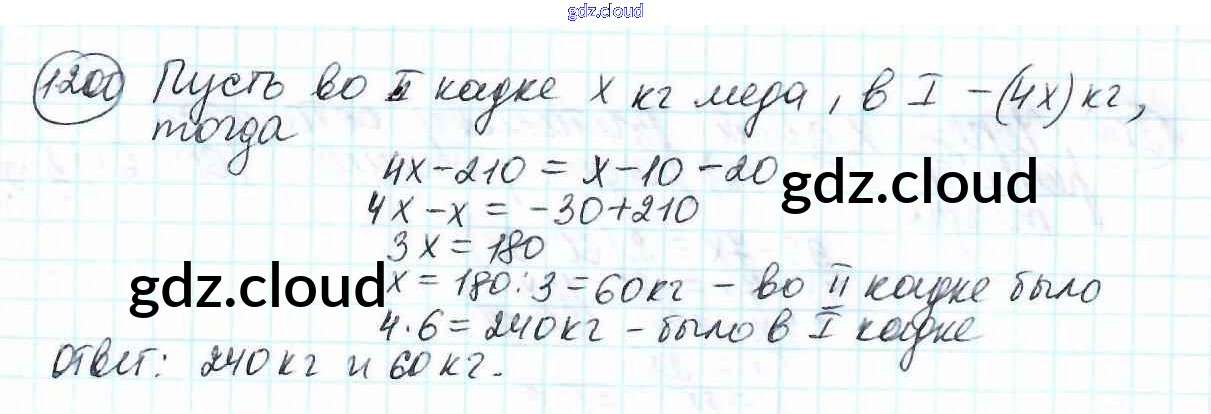 gdz.cloud
1200 Пусть во II кадке x кг меда, в I – (4x) кг,
тогда
4x – 210 = x – 10 – 20
gdz.cloud
4x – x = – 30 + 210
3x = 180
gdz.cloud
x = 180 : 3 = 60 кг – во II кадке было
4 · 6 = 240 кг – было в I кадке
Ответ: 240 кг и 60 кг.